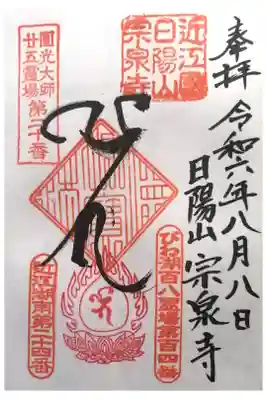 奉拝
令和六年八月八日
日陽山 宗泉寺
近江國
日陽山
宗泉寺
圓光大師
廿五霊場 第二十番
びわ湖百八霊場第百四番
近江湖南第二十四番